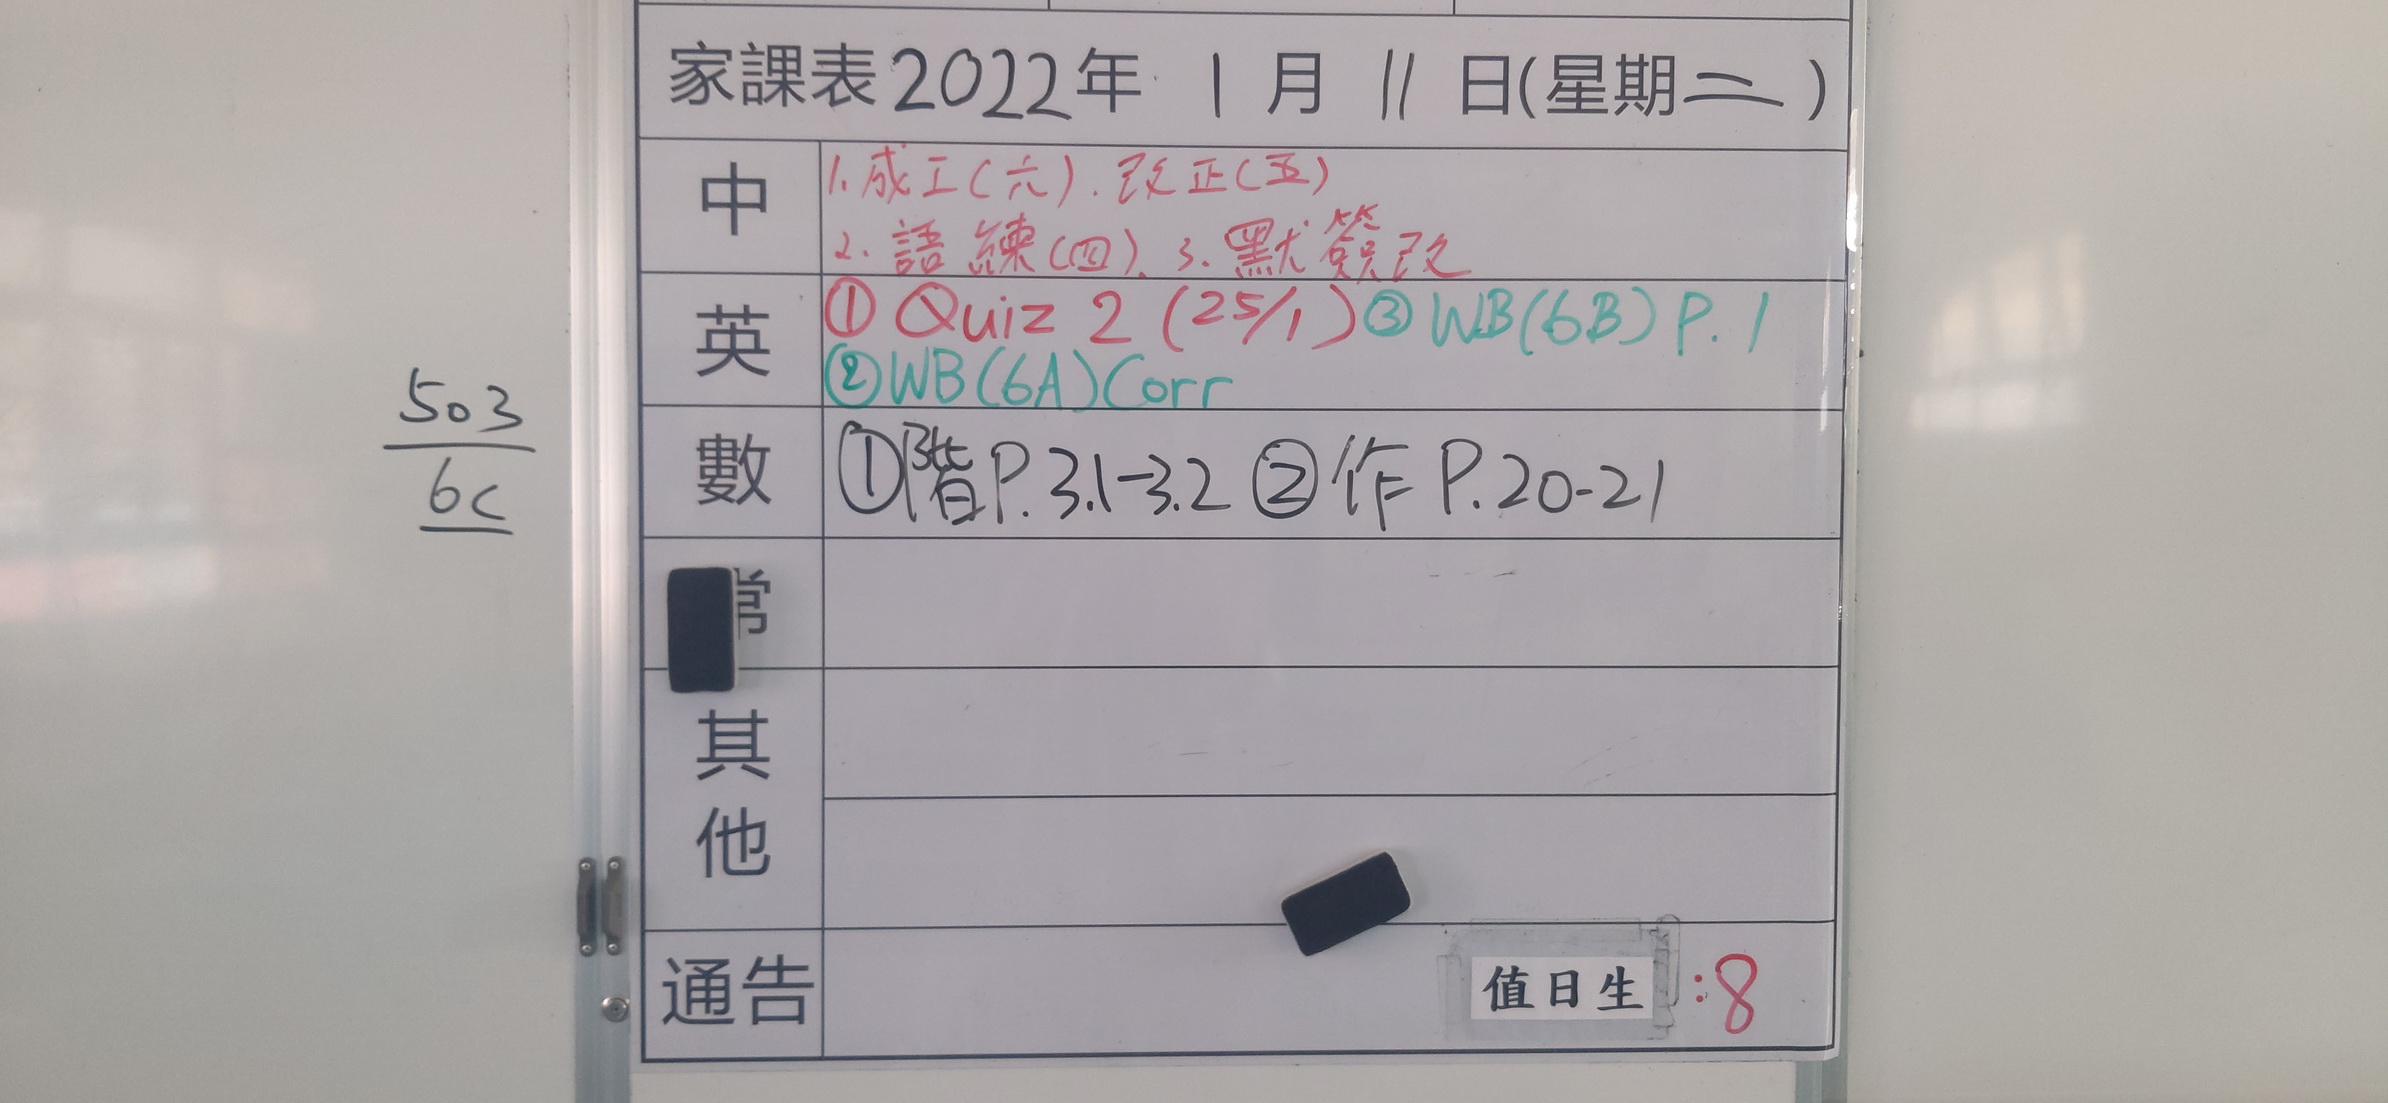 家課表2022年 1 月 11 日(星期二)
中
1. 成工(六). 改正(五)
2. 語練(四). 3. 默簽改
英
① Quiz 2 (25/1) ③ WB(6B) P.1
② WB(6A) Corr
503
6C
數
①階P.3.1-3.2 ②作 P.20-21
常
其
他
通告
值日生 :8